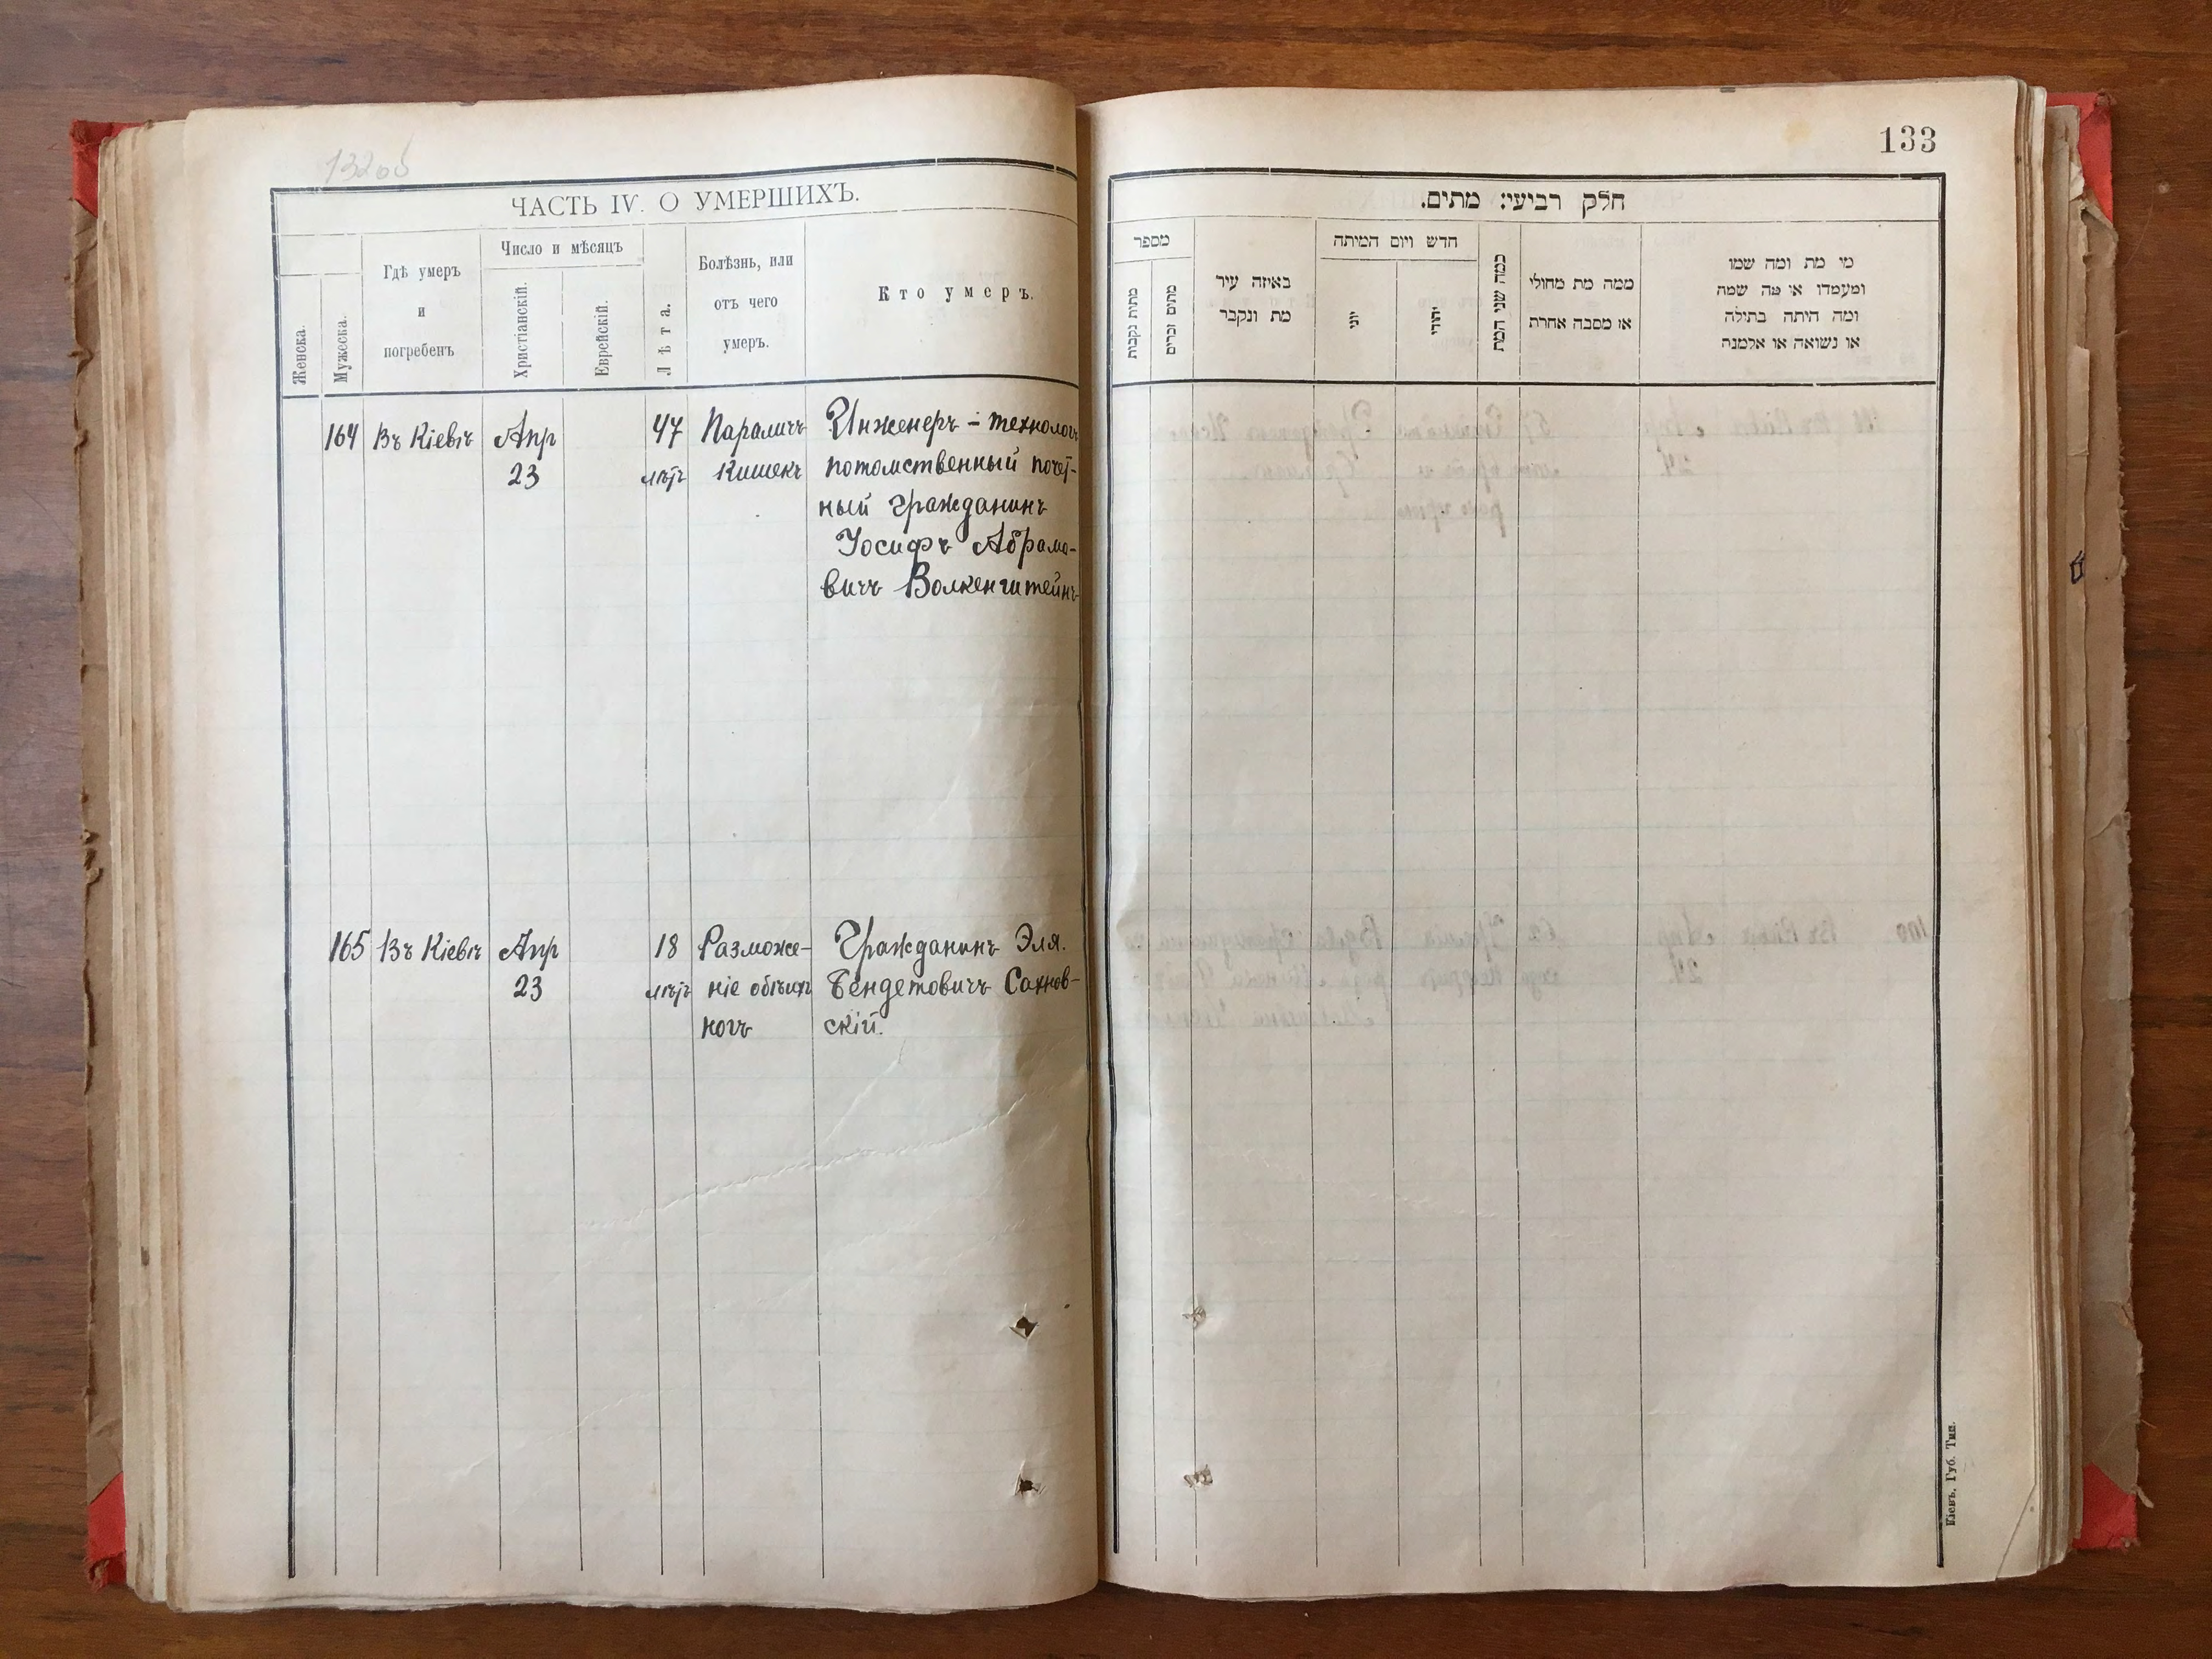 132об
ЧАСТЬ IV. О УМЕРШИХЪ.
Женска.
Мужеска.
Гдѣ умеръ
и
погребенъ
Число и мѣсяцъ
Христіанскій.
Еврейскій.
Лѣта.
Болѣзнь, или
отъ чего
умеръ.
Кто умеръ.
164 Въ Кіевѣ Апр 47 Параличъ Инженеръ - технологъ
23 лѣтъ Кишекъ потомственный почет-
ный гражданинъ
Іосифъ Абрамо-
вичъ Волкенштейнъ
165 Въ Кіевѣ Апр 18 Размозже- Гражданинъ Эля.
23 лѣтъ ніе обѣихъ Бендетовичъ Сахнов-
ногъ скій.
133
חלק רביעי: מתים.
מספר
מתות נקבות
מתים זכרים
באיזה עיר
מת ונקבר
חדש ויום המיתה
יוני
יהודי
כמה שני המת
ממה מת מחולי
או מסבה אחרת
מי מת ומה שמו
ומעמדו או מה שמה
ומה היתה בתולה
או נשואה או אלמנה
Кіевъ, Губ. Тип.